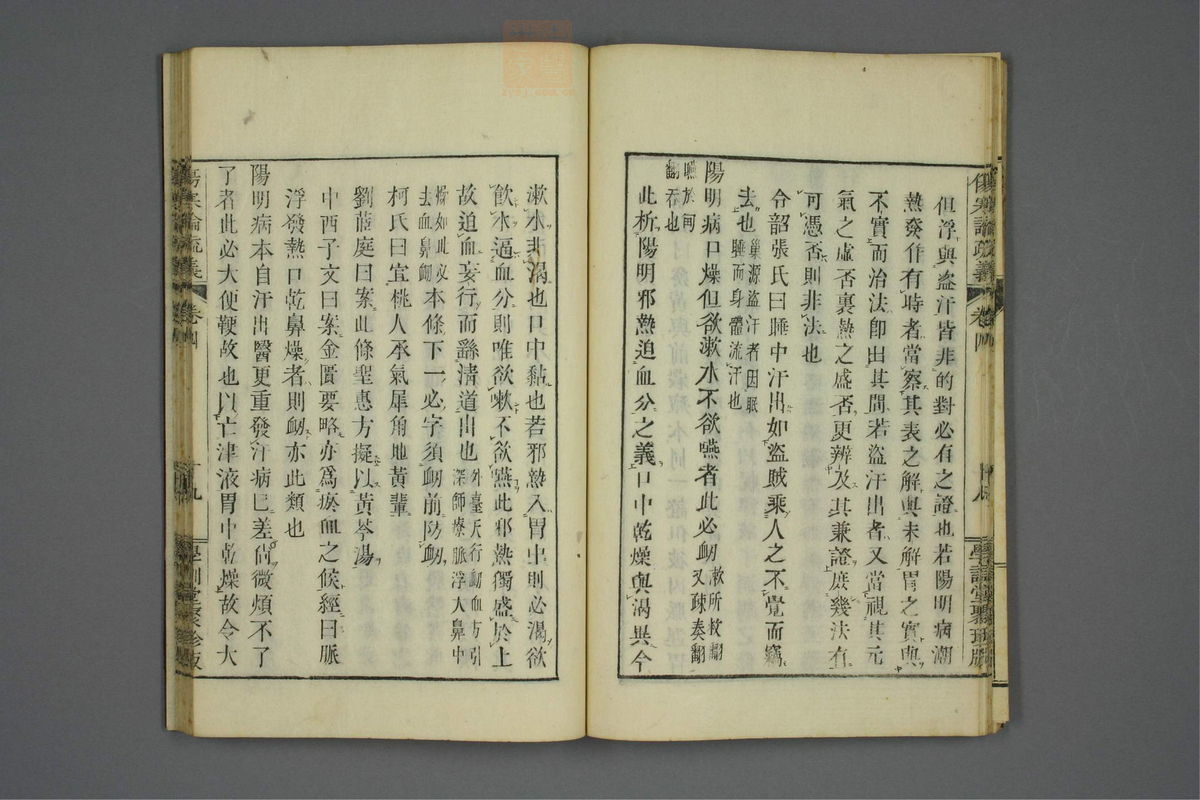 但浮與盜汗皆非的對必有之證也若陽明病潮
熱發作有時者當察其表之解與未解胃之實與
不實而治法卽出其間若盜汗出者又當視其元
氣之虛否裏熱之盛否更辨及其兼證庶幾法有
可憑否則非法也
令韶張氏曰睡中汗出如盜賊乘人之不覺而竊
去也巢源盜汗者因眠
睡而身體流汗也
陽明病口燥但欲漱水不欲嚥者此必衂漱所救翻
又疎奏翻
嚥於甸
翻吞也
此析陽明邪熱迫血分之義口中乾燥與渴異今
漱水非渴也口中黏也若邪熱入胃中則必渴欲
飲水逼血分則唯欲漱不欲嚥此邪熱獨盛於上
故迫血妄行而繇清道出也外臺天行衂血方引
深師療脈浮大鼻中
燥如此必
去血鼻衂本條下一必字須衂前防衂
柯氏曰宜桃人承氣犀角地黃輩
劉茝庭曰案此條聖惠方擬以黃芩湯
中西子文曰案金匱要略亦爲瘀血之候經曰脈
浮發熱口乾鼻燥者則衂亦此類也
陽明病本自汗出醫更重發汗病已差尙微煩不了
了者此必大便鞕故也以亡津液胃中乾燥故令大
傷寒論疏義
卷四
十九
學訓堂聚珍版
卷四